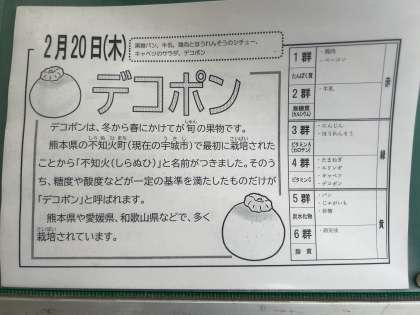 2月20日(木)
黒糖パン、牛乳、鶏肉とほうれんそうのシチュー、
キャベツのサラダ、デコポン
デコポン
デコポンは、冬から春にかけてが旬の果物です。
しゅん
熊本県の不知火町(現在の宇城市)で最初に栽培された
しらぬひまち
うきし
さいばい
ことから「不知火(しらぬひ)」と名前がつきました。そのう
ち、糖度や酸度などが一定の基準を満たしたものだけが
「デコポン」と呼ばれます。
熊本県や愛媛県、和歌山県などで、多く
さいばい
栽培されています。
1群
たんぱく質
・鶏肉
・ベーコン
2群
無機質
(カルシウム)
・牛乳
赤
3群
ビタミンA
(カロテン)
・にんじん
・ほうれんそう
4群
ビタミンC
・たまねぎ
・キャベツ
・デコポン
緑
5群
炭水化物
・パン
・じゃがいも
・砂糖
6群
脂質
黄